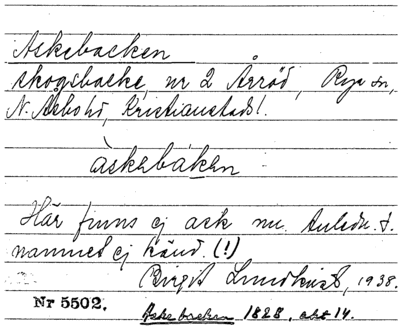 Askebacken
skogsbacke, nr 2 Årröd, Rya sn,
N. Åsbo hd, Kristianstads l.
àskebáken
Här finns ej ask nu. Anledn. t.
namnet ej känd. (!)
Birgit Lundkvist, 1938.
Nr 5502.
Askebacken 1828, akt 14.